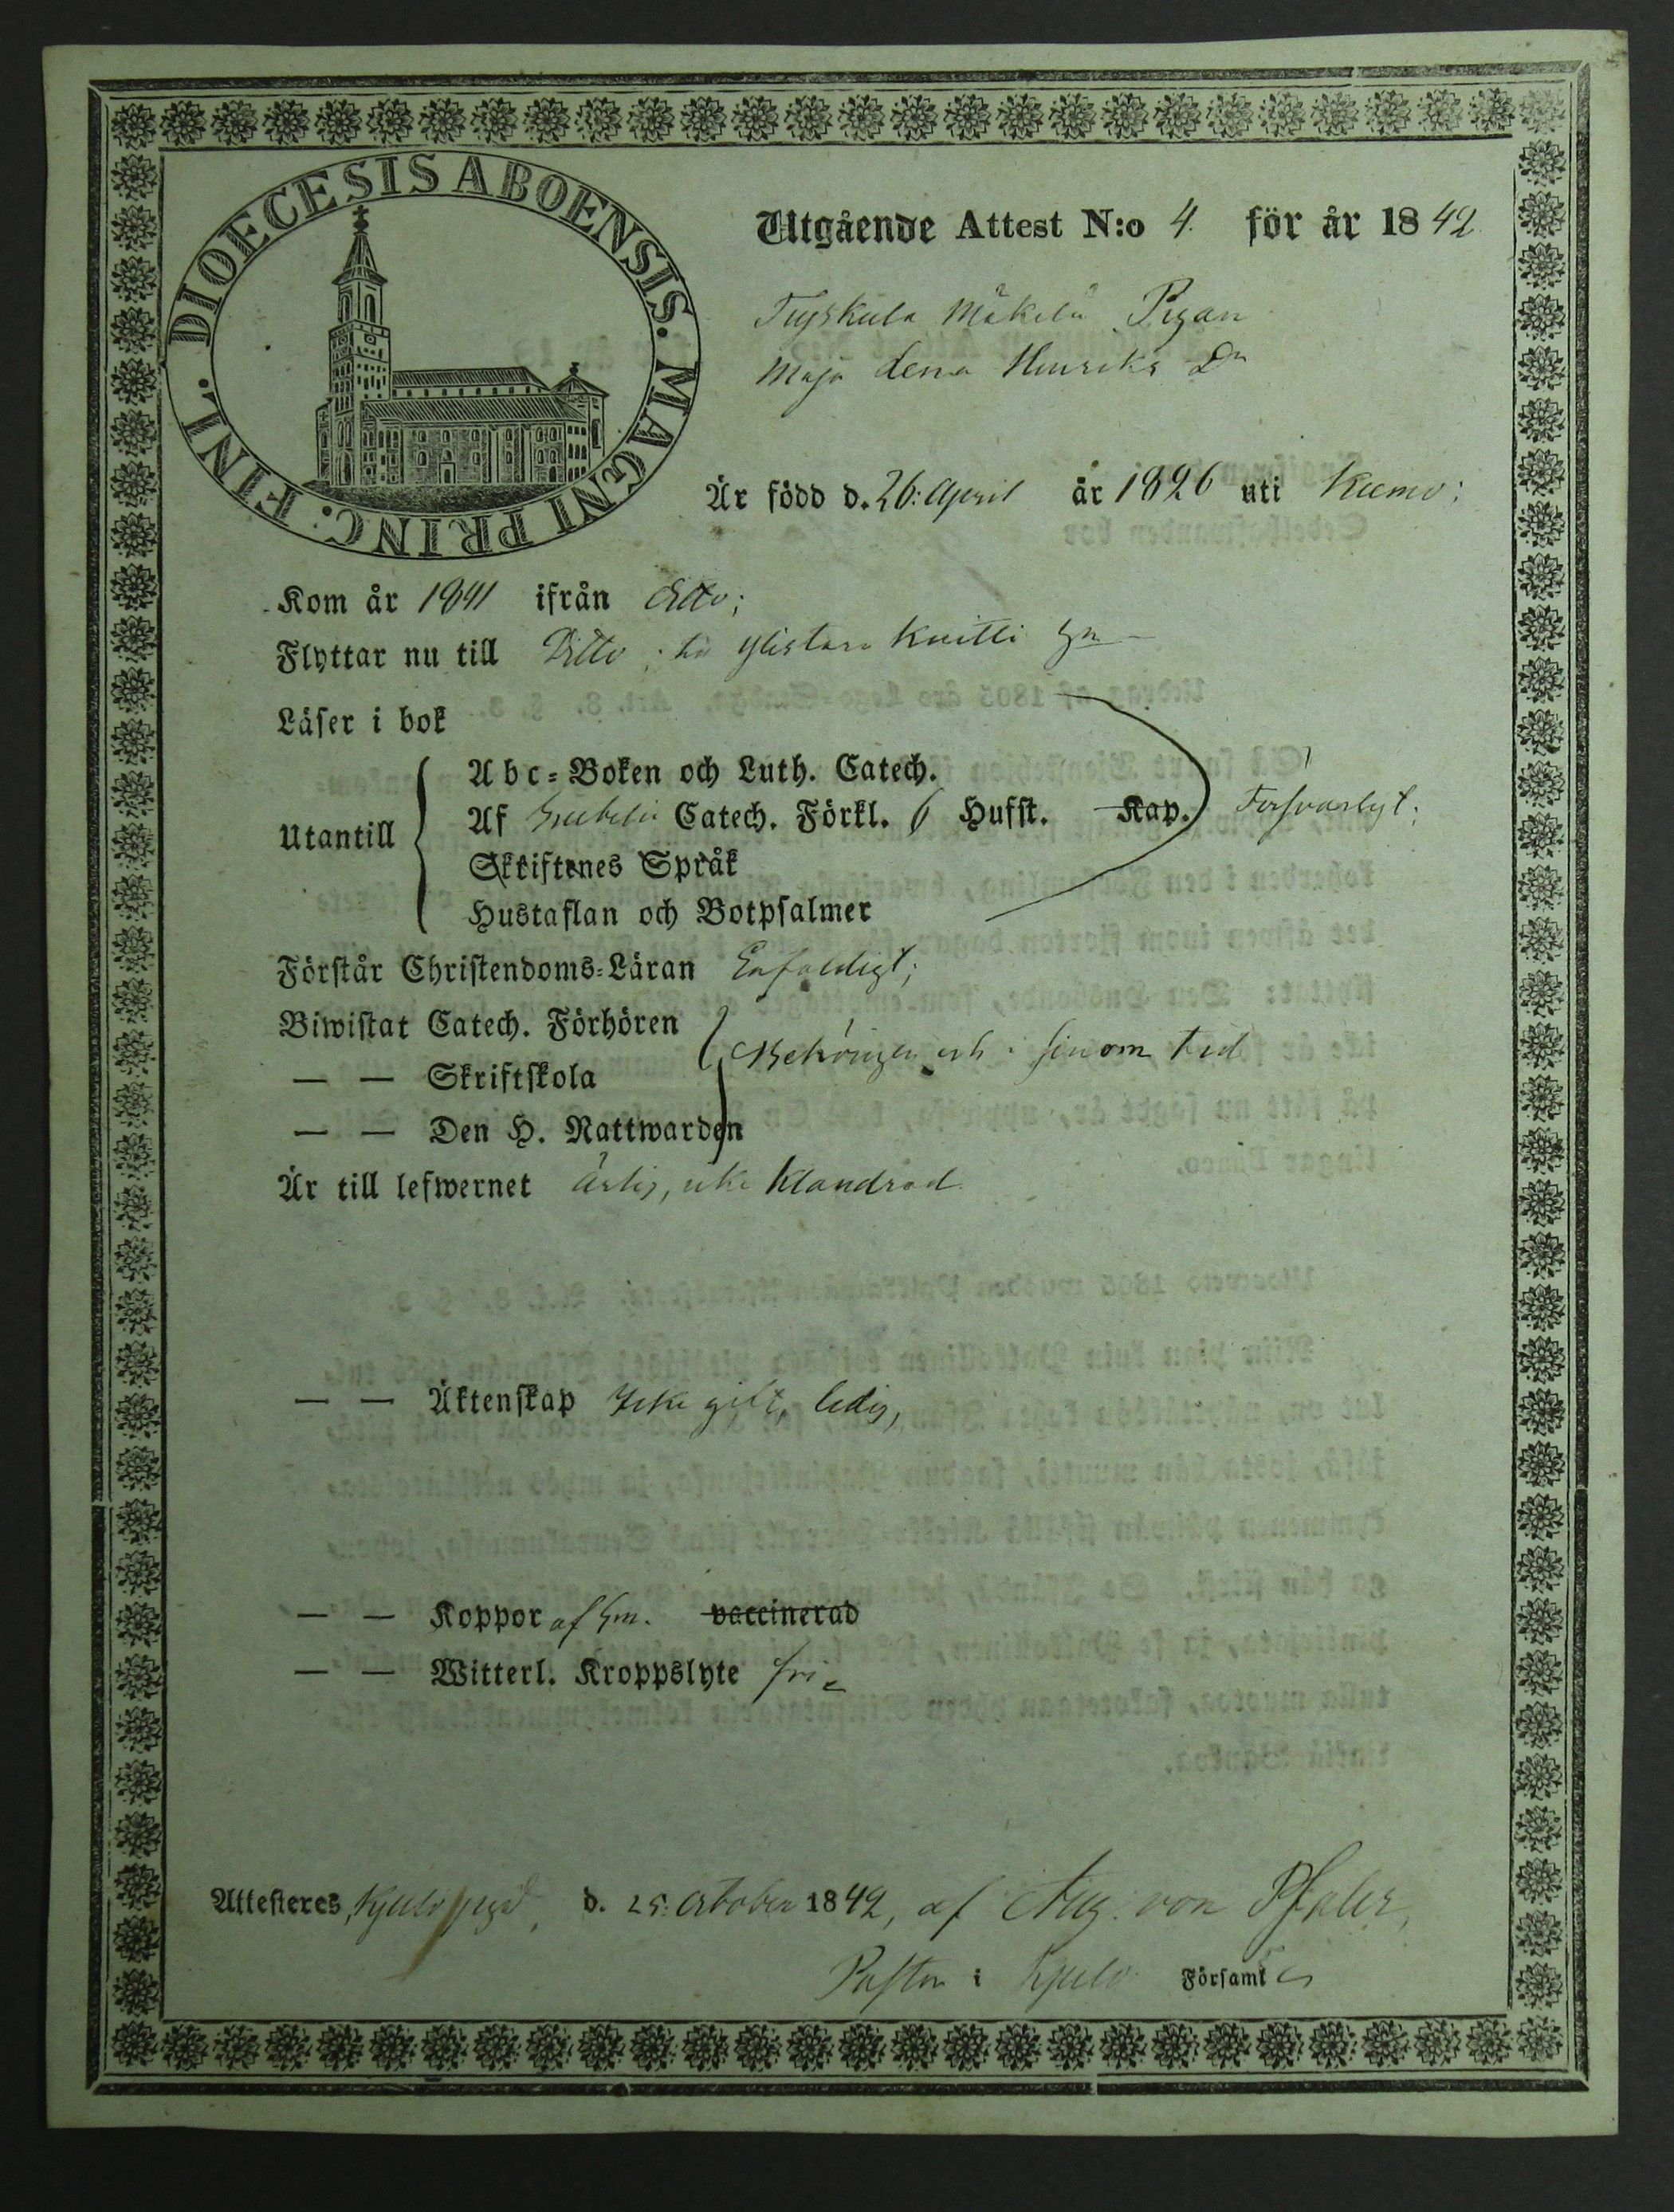 DIOECESIS ABOENSIS. MAGNI PRINC. FINL.
Utgående Attest N:o 4. för år 1842
Tuyskula Mäkelä Pigan
Maja Lena Henriks Dr
Är född d. 26: April år 1826 uti Kumo;
Kom år 1841 ifrån ditto;
Flyttar nu till Ditto; Ylistaro Knitti
Läser i bok
Utantill
Abc-Boken och Luth. Catech.
Af Svebelii Catech. Förkl. 6 Hufst. Kap. Försvarligt;
Skriftenes Språk
Hustaflan och Botpsalmer
Förstår Christendoms-Läran Enfaldigt;
Biwistat Catech. Förhören
— — Skriftskola Behörigen och i sinom tid
— — Den H. Nattwarden
Är till lefwernet ärlig, icke klandrad
— — Äktenskap Icke gift, ledig,
— — Koppor af Hm. vaccinerad
— — Witterl. Kroppslyte fri
Attesteres, Kjulo d. 25: October 1842, af Aug. von Pfaler,
Pastor i Kjulo Församl